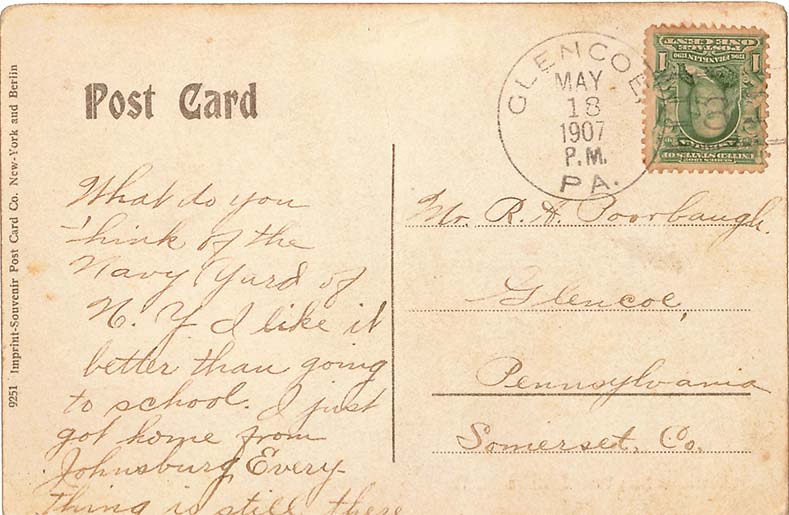 Post Card
9251 Imprint-Souvenir Post Card Co. New-York and Berlin
GLENCOE,
MAY
18
1907
P.M.
PA.
What do you
think of the
Navy Yard of
N. Y. I like it
better than going
to school. I just
got home from
Johnsburg, Every-
thing is still there
Mr. R. H. Poorbaugh.
Glencoe,
Pennsylvania
Somerset, Co.
ONE CENT
POSTAGE
FRANKLIN
1 1
UNITED STATES OF
AMERICA